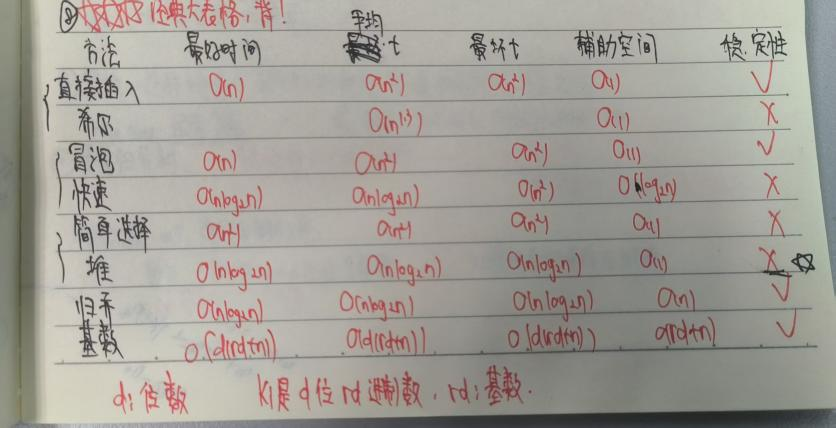 ② ☆☆☆ 经典大表格，背！
方法 最好时间 平均t 最坏t 辅助空间 稳定性
直接插入 O(n) O(n²) O(n²) O(1) ✓
希尔 O(n^1.3) O(1) ×
冒泡 O(n) O(n²) O(n²) O(1) ✓
快速 O(nlog₂n) O(nlog₂n) O(n²) O(log₂n) ×
简单选择 O(n²) O(n²) O(n²) O(1) ×
堆 O(nlog₂n) O(nlog₂n) O(nlog₂n) O(1) × ☆
归并 O(nlog₂n) O(nlog₂n) O(nlog₂n) O(n) ✓
基数 O(d(rd+n)) O(d(rd+n)) O(d(rd+n)) O(rd+n) ✓
d：位数 Ki是d位rd进制数，rd：基数.